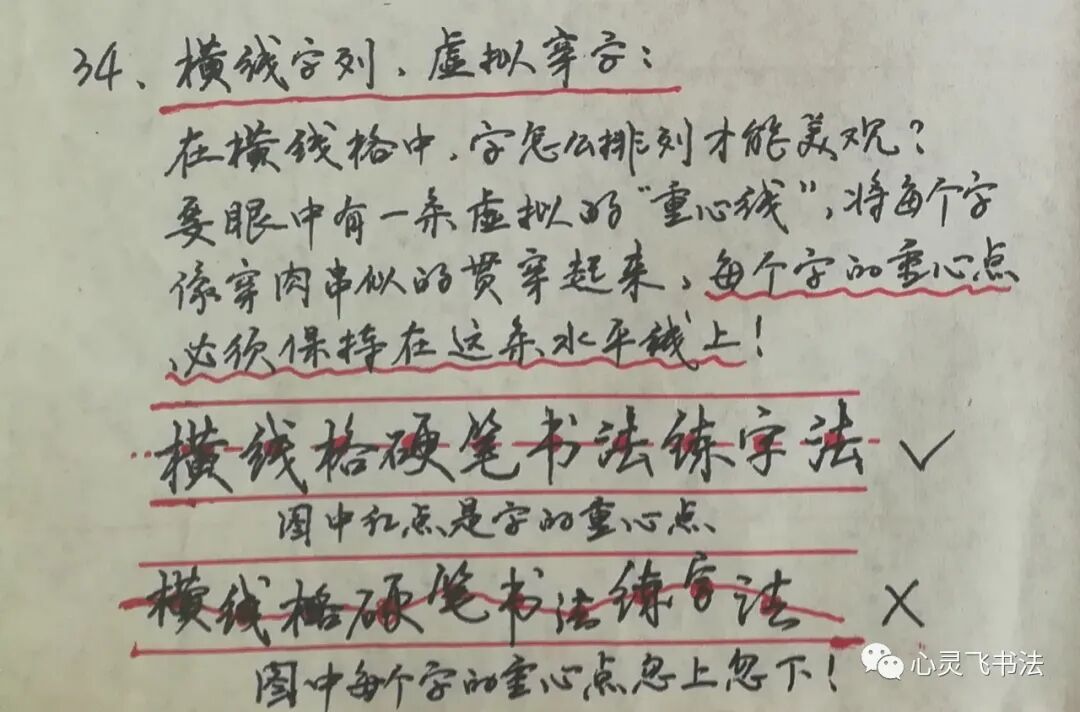 34、横线字列、虚拟穿字：
在横线格中，字怎么排列才能美观？
要眼中有一条虚拟的“重心线”，将每个字
像穿肉串似的贯穿起来，每个字的重心点
必须保持在这条水平线上！
横线格硬笔书法练字法 ✓
图中红点是字的重心点
横线格硬笔书法练字法 ×
图中每个字的重心点忽上忽下！
心灵飞书法